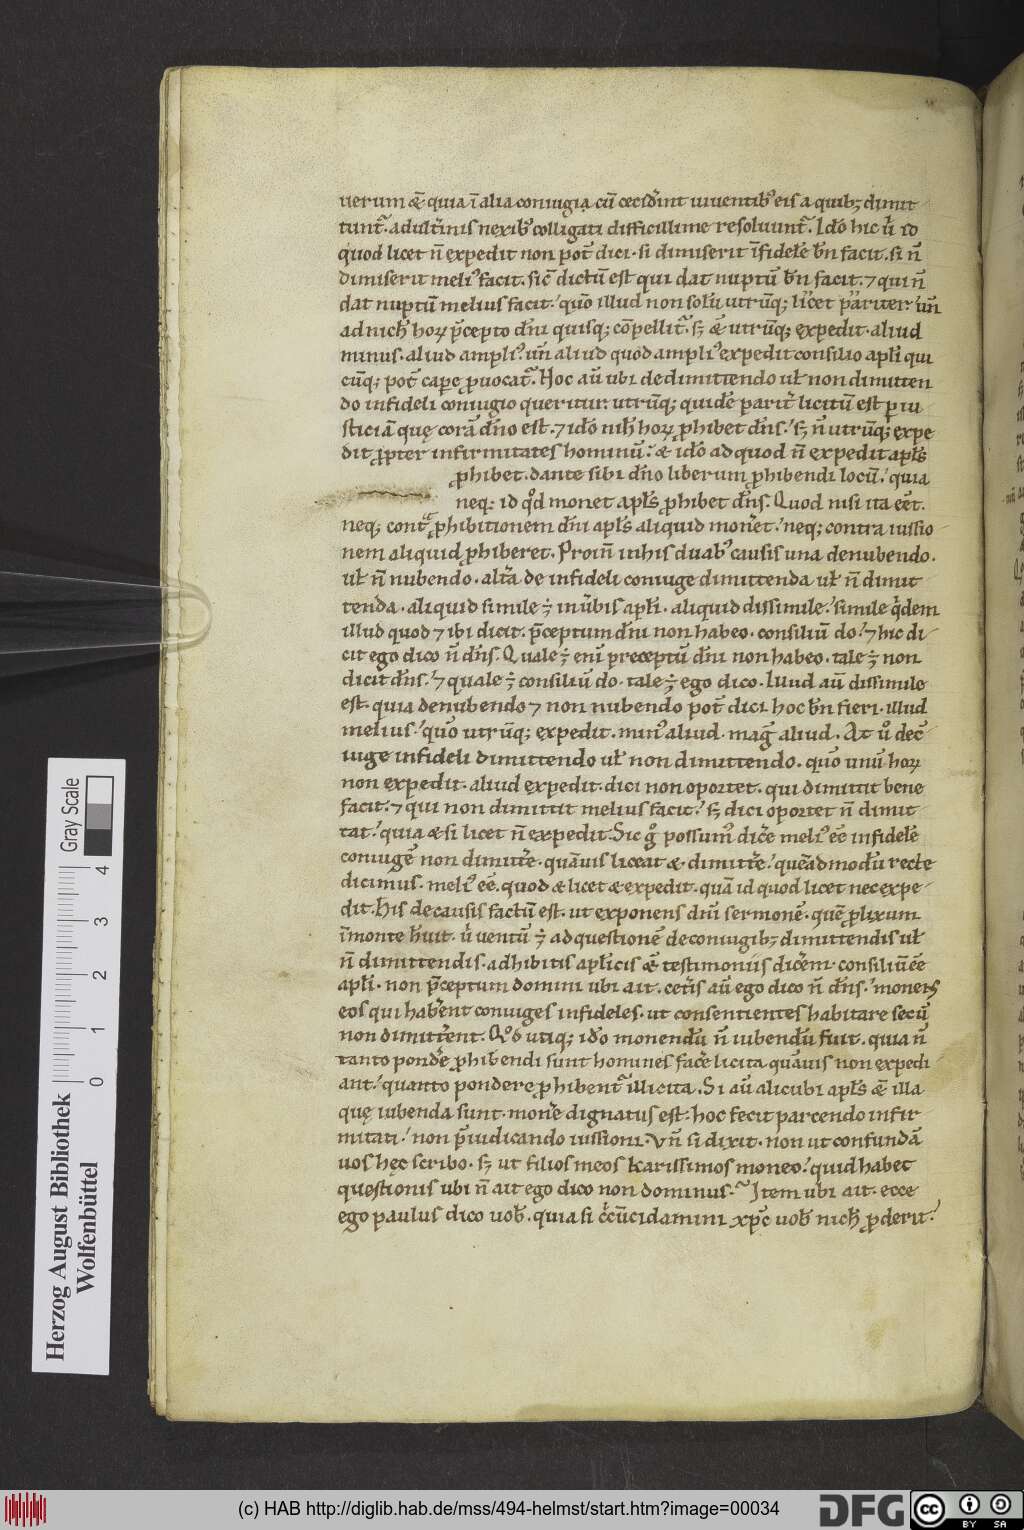 uerum & quia ī alia coniugia cū ceciđint uiuentibꝰ eis a quibꝫ dimit
tunt᷑. adult͛inis nexibꝰ colligati difficillime resoluunt᷑. Ido̅ hic ů id
quod licet n̅ expedit non pot̅ dici. si dimiserit īfidele̅ bn̅ facit. si n̅
dimiserit meliꝰ facit. sic̅ dictū est qui dat nuptū bn̅ facit. ⁊ qui n̅
dat nuptū melius facit. quo̅ illud non solū utrūqꝫ licet pariter. un̅
ad nich̅ horꝝ p̅cepto dn̅i quisqꝫ co̅pellit᷑. sꝫ & utrūqꝫ expedit. aliud
minus. aliud ampliꝰ. un̅ aliud quod ampliꝰ expedit consilio apl̅i qui
cūqꝫ pot̅ capere ꝓuocat᷑. Hoc au̅ ubi de dimittendo ul̅ non dimitten
do infideli coniugio queritur. utrūqꝫ quide̅ parit͛ licitū est ꝑ iu
sticiā quę corā dn̅o est. ⁊ ido̅ nih̅ horꝝ ꝓhibet dn̅s. sꝫ n̅ utrūqꝫ expe
dit ꝓpter infirmitates hominū. & ido̅ ad quod n̅ expedit apl̅s
ꝓhibet. dante sibi dn̅o liberum ꝓhibendi locū. quia
neqꝫ id qͦd monet apl̅s ꝓhibet dn̅s. Quod nisi ita e̅et.
neqꝫ contᷓ ꝓhibitionem dn̅i apl̅s aliquid mone͛t. neqꝫ contra iussio
nem aliquid ꝓhiberet. Proin̅ in his duabꝰ causis una de nubendo.
ul̅ n̅ nubendo. alt͛a de infideli coniuge dimittenda ul̅ n̅ dimit
tenda. aliquid simile ē in u͛bis apl̅i. aliquid dissimile. simile qͥdem
illud quod ⁊ ibi dicit. p̅ceptum dn̅i non habeo. consiliū do. ⁊ hic di
cit ego dico n̅ dn̅s. Quale ē eni̅ preceptū dn̅i non habeo. tale ē non
dicit dn̅s. ⁊ quale ē consiliū do. tale ē ego dico. Iluud au̅ dissimile
est. quia de nubendo ⁊ non nubendo pot̅ dici hoc bn̅ fieri. illud
melius. quo̅ utrūqꝫ expedit. minꝰ aliud. mag̅ aliud. At uͦ de co̅
iuge infideli dimittendo ul̅ non dimittendo. quo̅ unū horꝝ
non expedit. aliud expedit. dici non oportet. qui dimittit bene
facit. ⁊ qui non dimittit melius facit. sꝫ dici oportet n̅ dimit
tat. quia & si licet n̅ expedit. Sic gͦ possumꝰ dic͛e meliꝰ e̅e infidele̅
coniuge̅ non dimitt͛e. quāuis liceat & dimitt͛e. que̅admodū recte
dicimus. meliꝰ e̅e. quod & licet & expedit. quā id quod licet nec expe
dit. His de causis factū est. ut exponens dn̅i sermone̅. que̅ ꝓlixum
ī monte habuit. u͛ ventū ē ad questione̅ de coniugibꝫ dimittendis ul̅
n̅ dimittendis. adhibitis apl̅icis & testimoniis dice͛m consiliū e̅e
apl̅i. non p̅ceptum domini ubi ait. cet͛is au̅ ego dico n̅ dn̅s. monens
eos qui habe͛nt coniuges infideles. ut consentientes habitare secū
non dimitte͛nt. Qͦd utiqꝫ ido̅ monendū n̅ iubendū fuit. quia n̅
tanto ponde͛ ꝓhibendi sunt homines fac͛e licita quāuis non expedi
ant. quanto pondere ꝓhibent᷑ illicita. Si au̅ alicubi apl̅s & illa
quę iubenda sunt. mone͛ dignatus est. hoc fecit parcendo infir
mitati. non p̅iudicando iussioni. Vn̅ si dixit. non ut confundā
uos hęc scribo. sꝫ ut filios meos karissimos moneo. quid habet
questionis ubi n̅ ait ego dico non dominus. Item ubi ait. ecce
ego paulus dico uob̅. quia si cͥcūcidamini xp̅c uob̅ nich̅ ꝓderit.
Gray Scale
0 1 2 3 4
Herzog August Bibliothek
Wolfenbüttel
(c) HAB http://diglib.hab.de/mss/494-helmst/start.htm?image=00034
DFG
cc BY SA